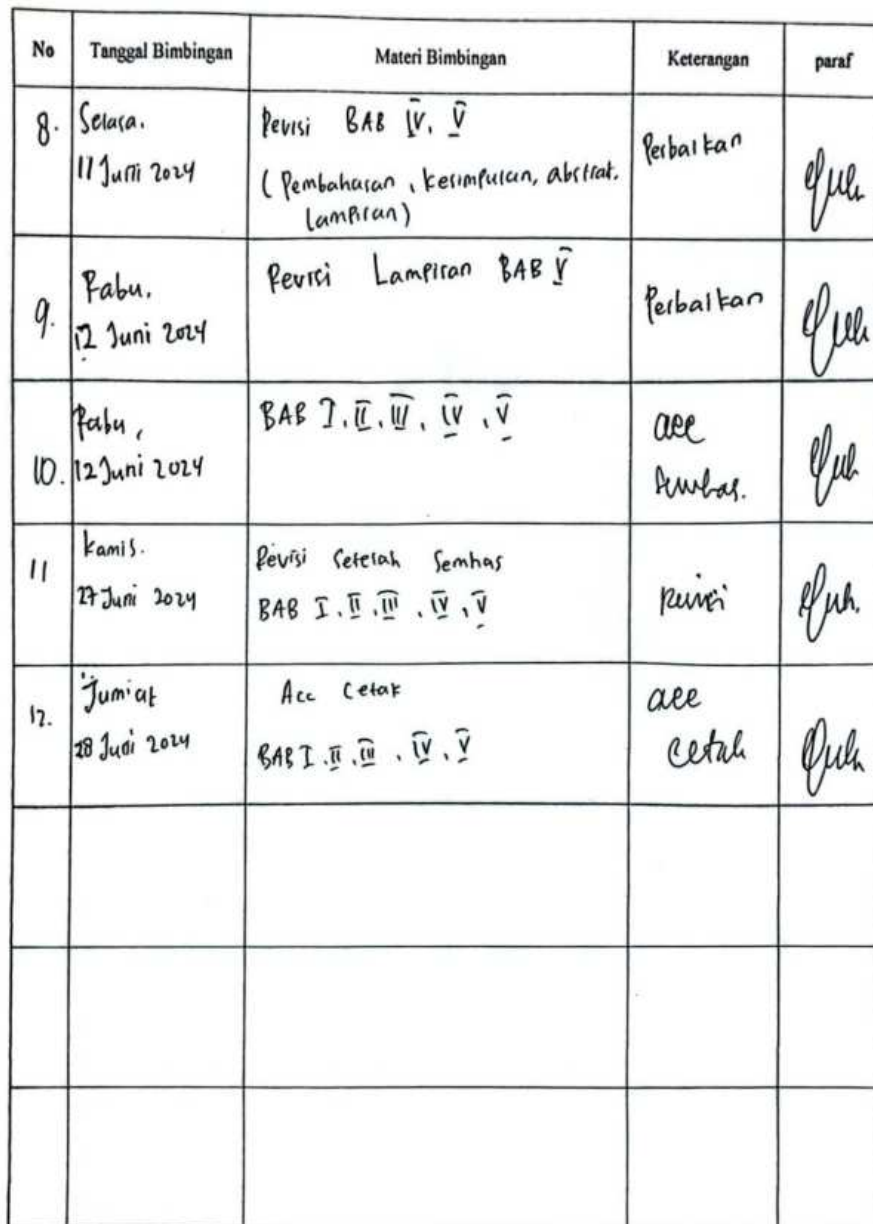 No Tanggal Bimbingan Materi Bimbingan Keterangan paraf
8. Selasa. 11 Juni 2024
Revisi BAB IV, V
(Pembahasan, kesimpulan, abstrak, lampiran)
Perbaikan
9. Rabu, 12 Juni 2024
Revisi Lampiran BAB V
Perbaikan
10. Rabu, 12 Juni 2024
BAB I, II, III, IV, V
acc
semhas.
11 Kamis. 27 Juni 2024
Revisi Setelah Semhas
BAB I, II, III, IV, V
Revisi
12. Jum'at 28 Juni 2024
Acc Cetak
BAB I, II, III, IV, V
acc
cetak